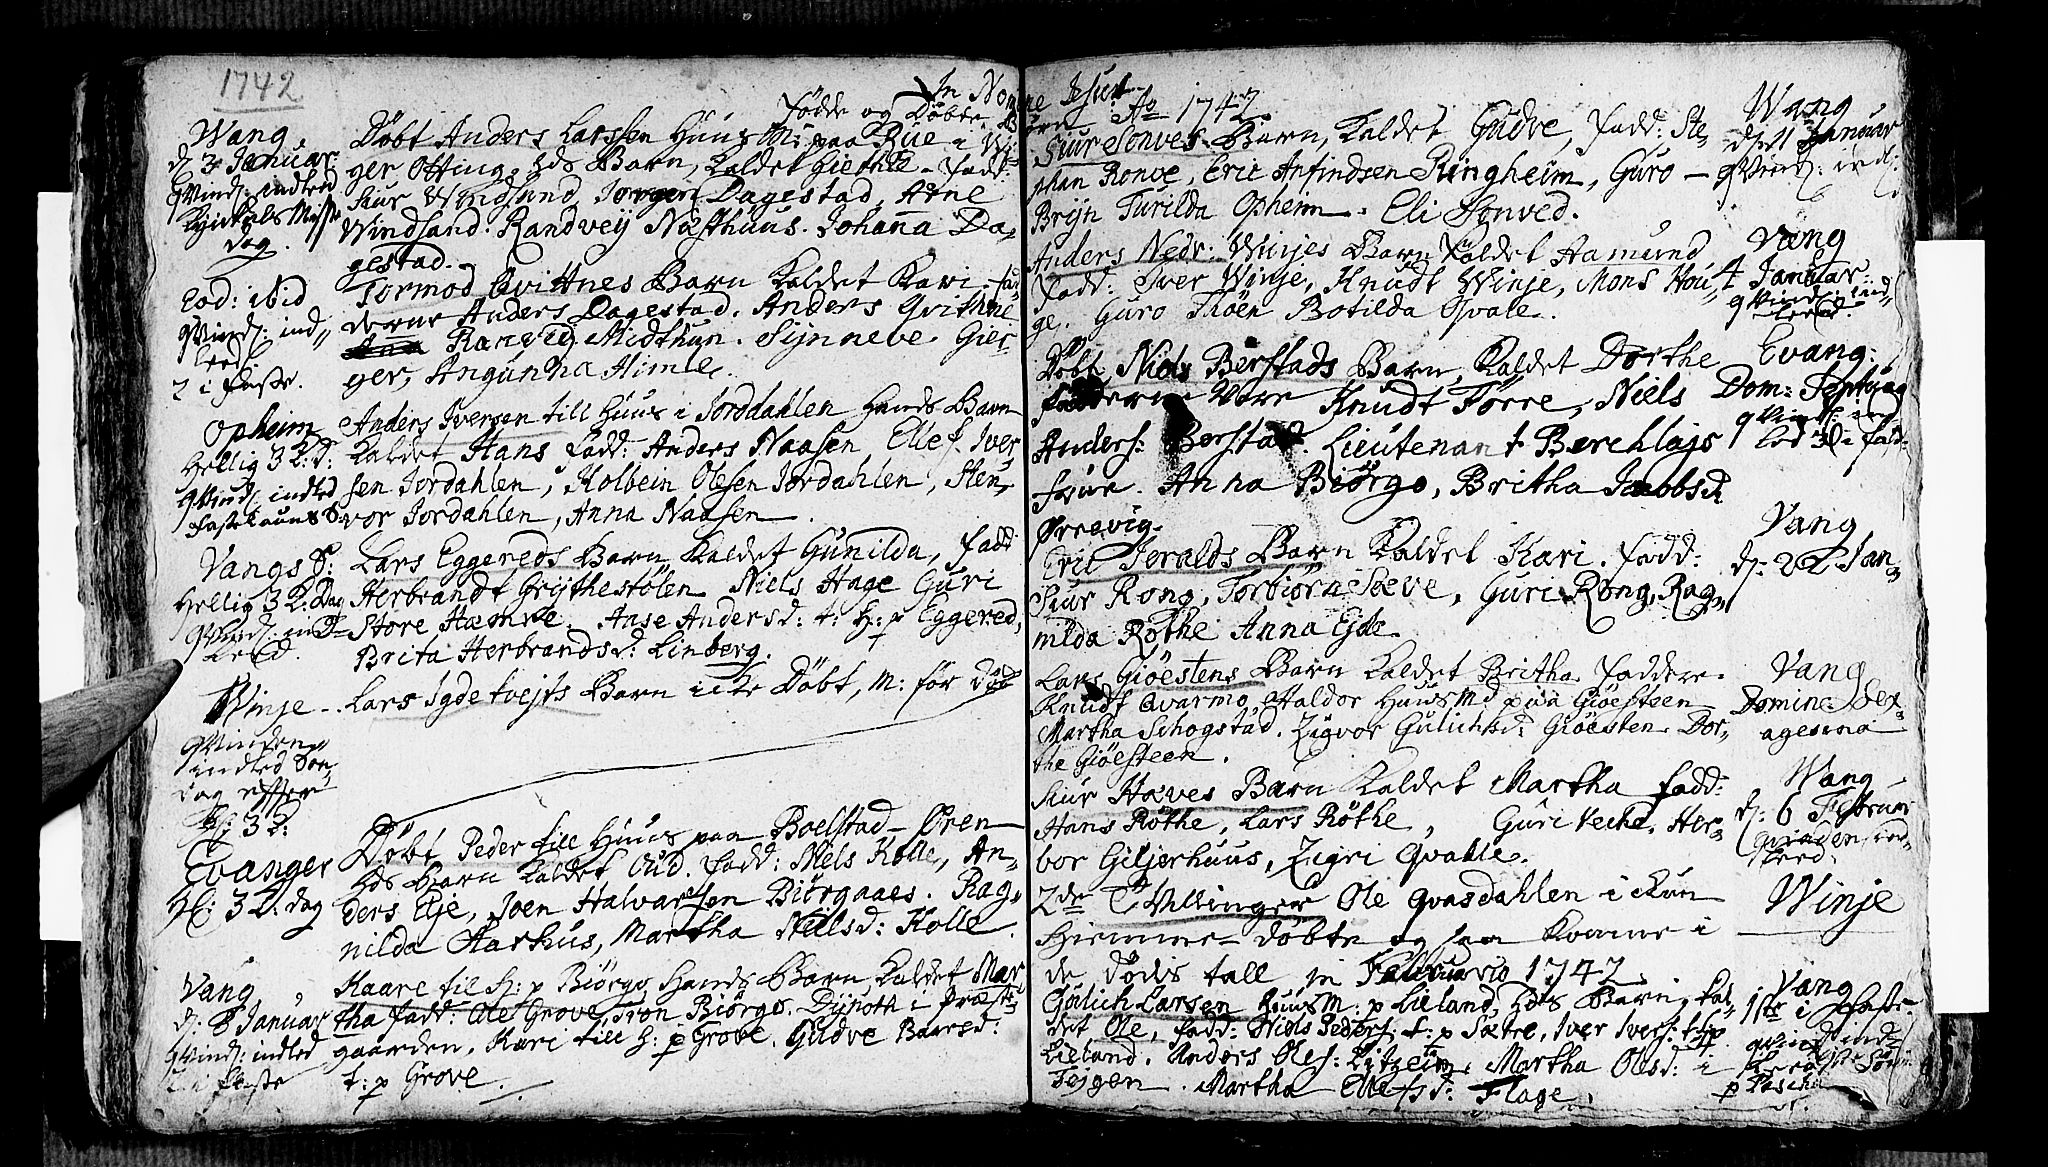 1742
In Nomine Jesu!
Fødde og Døbte Børn Ao 1742
Wang
d: 3 Januar:
qvind: indled
Kyndels Misse
dag.
Døbt Anders Larssen Huus M: paa Rue i Vi-
ger Otting, hds Barn, kaldet Giertrue - fadd:
Siur Windsand, Jørgen Dagestad, Arne
Windsand. Randveij Næsthuus. Johanna Da-
gestad.
Eod: ibid
qvind: ind-
leed
2 i faste.
Tormod Qvittnes Barn kaldet Kari. fad-
derne Anders Dagestad. Anders Qvithne
Ranveig Midthun. Sijnneve Gier-
ger, Angunna Himle.
Opheim
Hellig 3 K: d:
qvind: indled
fastelauns S:
Anders Iversen till Huus i Jorddahlen Hands Barn
kaldet Hans fadd: Anders Naasen, Ellef Iver
sen Jordahlen, Kolbein Olesen Jordahlen, Sten-
vor Jordahlen, Anna Naasen.
Vangs S:
Hellig 3 K: Dag
qvind: ind-
leed.
Lars Eggereds Barn kaldet Gunilda, fadd
Herbrandt Grijthestølen Niels Hage Guri
Store Hamre. Anse Andersd: t: H: p Eggered,
Brita Herbrandsd: Linberg.
Winje
qvinden
indled Søn-
dag efter
H: 3 K:
Lars Sgdetvejts Barn icke Døbt, M: før død
Evanger
H: 3 K: dag
Døbt Peder till Huus paa Boelstad-Øren
hds Barn kaldet Oud. fadd: Niels Kolle, An-
ders Eje, Joen Halvarssen Biørgaaes. Rag-
nilda Aarhus, Martha Nielsd: Kolle.
Vang
d: 8 Januar
qvind: indled
i faste
Kaare til H: p Biørgo Hands Barn kaldet Mar
tha fadd: Ole Grove, Tron Biørgo. Dijnoth i Præste-
gaarden. Kari till H: p Grove. Gudve Baarsd:
t: p Grove.
Wang
d: 11 Januar
qvind: ind:
Siur Sonves Barn, kaldet Gudve, fadd: Ste-
phan Ronve, Eric Anfindsen Ringheim, Guro -
Brijn Turilda Opheim. Eli Sonved.
Vang
Januar:
qvind: ind-
leed.
Anders Nedr: Winjes Barn kaldet Aamund
fadd: Iver Winje, Knudt Winje, Mons Hou-
ge. Guro Thøen Botilda Qvale.
Evang:
Dom: Septuag
qvind: ind
Døbt Niels Berstads Barn kaldet Dorthe
fadderne Vare Knudt Førre, Niels
Anders: Berstad. Lieutenant Berchlajs
frue. Anna Biørgo, Britha Jacobsd
Ørrevig.
Vang
d: 22 Jan-
Eric Jeralds Barn kaldet Kari. fadd:
Siur Rong, Torbiørn Seeve, Guri Rong, Rag-
nilda Røthe Anna Ejde.
Vang
Domin: Sex-
agesima
Lars Giøestens Barn kaldet Britha. faddere.
Knudt Qvarmo, Haldor Huus Md paa Giøesteen
Martha Schogstad. Zigvor Gulichsd: Giøesten Dor-
the Giøesteen.
Wang
d: 6 Februar
qvinden ind-
leed.
Siur Hæves Barn kaldet Martha fadd:
Hans Røthe, Lars Røthe, Guri Veche. Her-
bor Giljerhuus, Zigri Qvahle.
Winje
2de Tvillinger Ole Qvasdahlen i kun
Hjemme-døbte og saa komme i
de Dødis tall in Februario 1742.
Vang
1ste i Faste
qvind: ind-
leed Søn:
p Pascha
Gulich Larsen Huus M. p Lieland, hds Barn, kal-
det Ole, fadd: Niels Peders: t: p Sætre, Iver Ivers: t: H p
Lieland. Anders Oles: Litzeim. Martha Olesd: i
Tejgen. Martha Ellefsd: Flage.